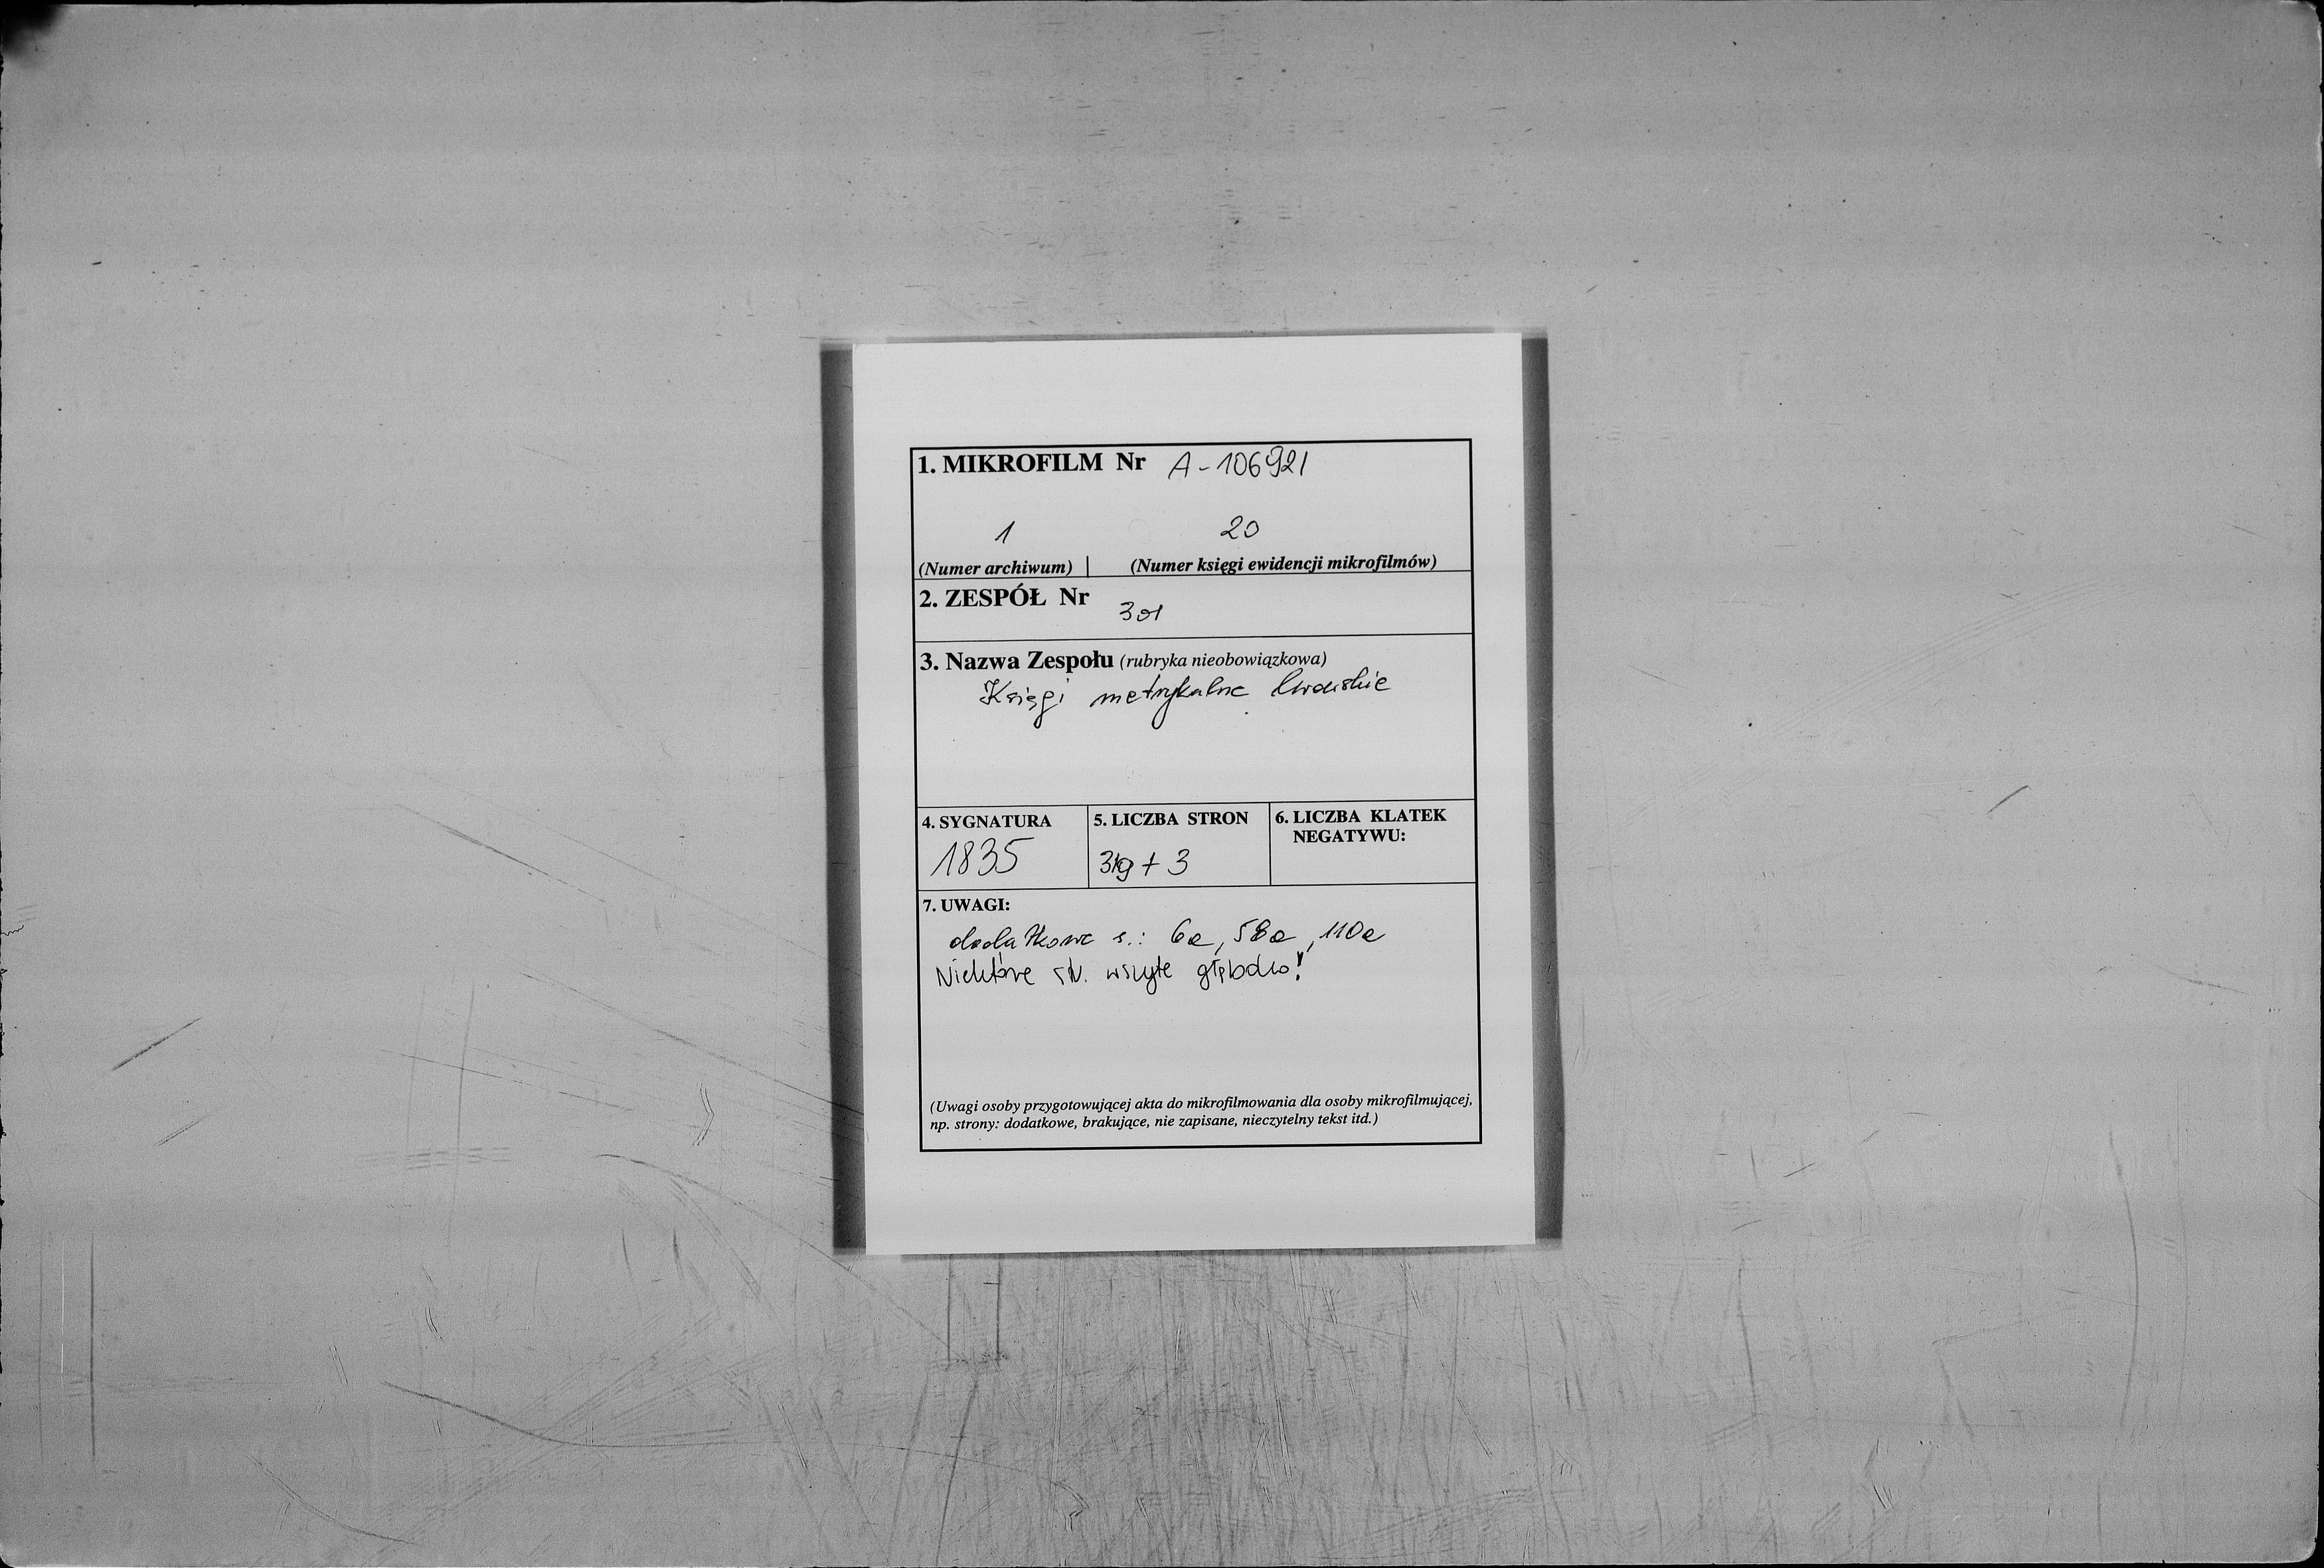 1. MIKROFILM Nr A-106921
1 20
(Numer archiwum) | (Numer księgi ewidencji mikrofilmów)
2. ZESPÓŁ Nr 301
3. Nazwa Zespołu (rubryka nieobowiązkowa)
Księgi metrykalne lwowskie
4. SYGNATURA 5. LICZBA STRON 6. LICZBA KLATEK
NEGATYWU:
1835 + 3
7. UWAGI:
dodatkowe s.: 6a, 58a, 110a
Niektóre str. wszyte głęboko!
(Uwagi osoby przygotowującej akta do mikrofilmowania dla osoby mikrofilmującej,
np. strony: dodatkowe, brakujące, nie zapisane, nieczytelny tekst itd.)